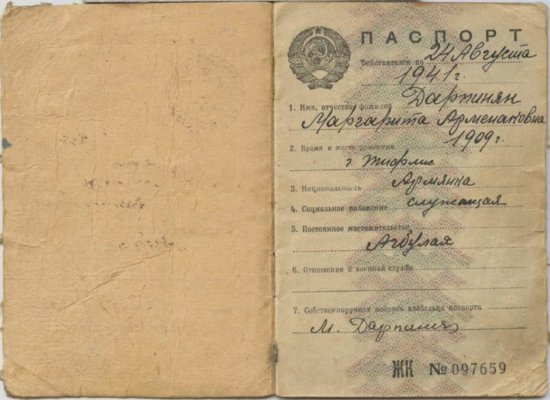 ПАСПОРТ
Действителен по 24 Августа
1941 г.
1. Имя, отчество фамилия Дарпинян
Маргарита Арменаковна
2. Время и место рождения 1909 г
г Тифлис
3. Национальность Армянка
4. Социальное положение служащая
5. Постоянное местожительство
6. Отношение к военной службе
7. Собственноручная подпись владельца паспорта
М. Дарпинян
ЖК № 097659